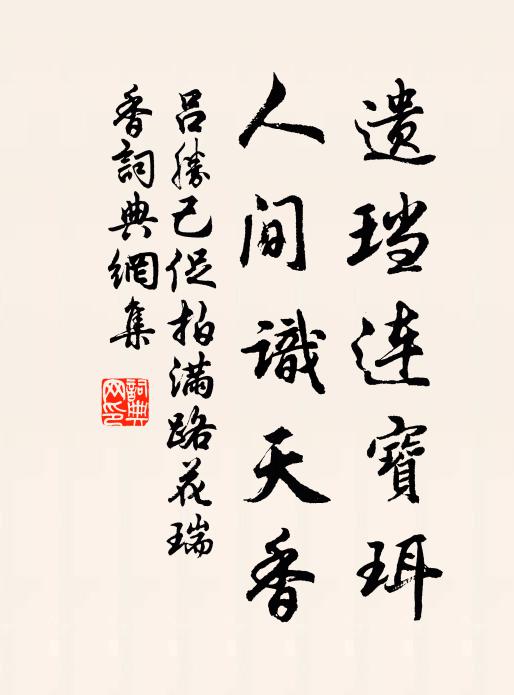 遗珰连寶珥
人间識天香
吕勝己促拍满路花瑞
香詞典網集
詞典
网印